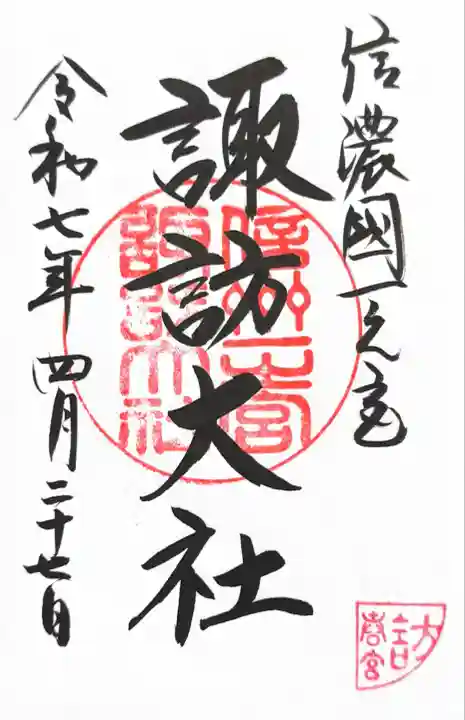 信濃國一之宮
諏訪大社
令和七年四月二十七日
信州一之宮
諏訪大社
訪
春宮